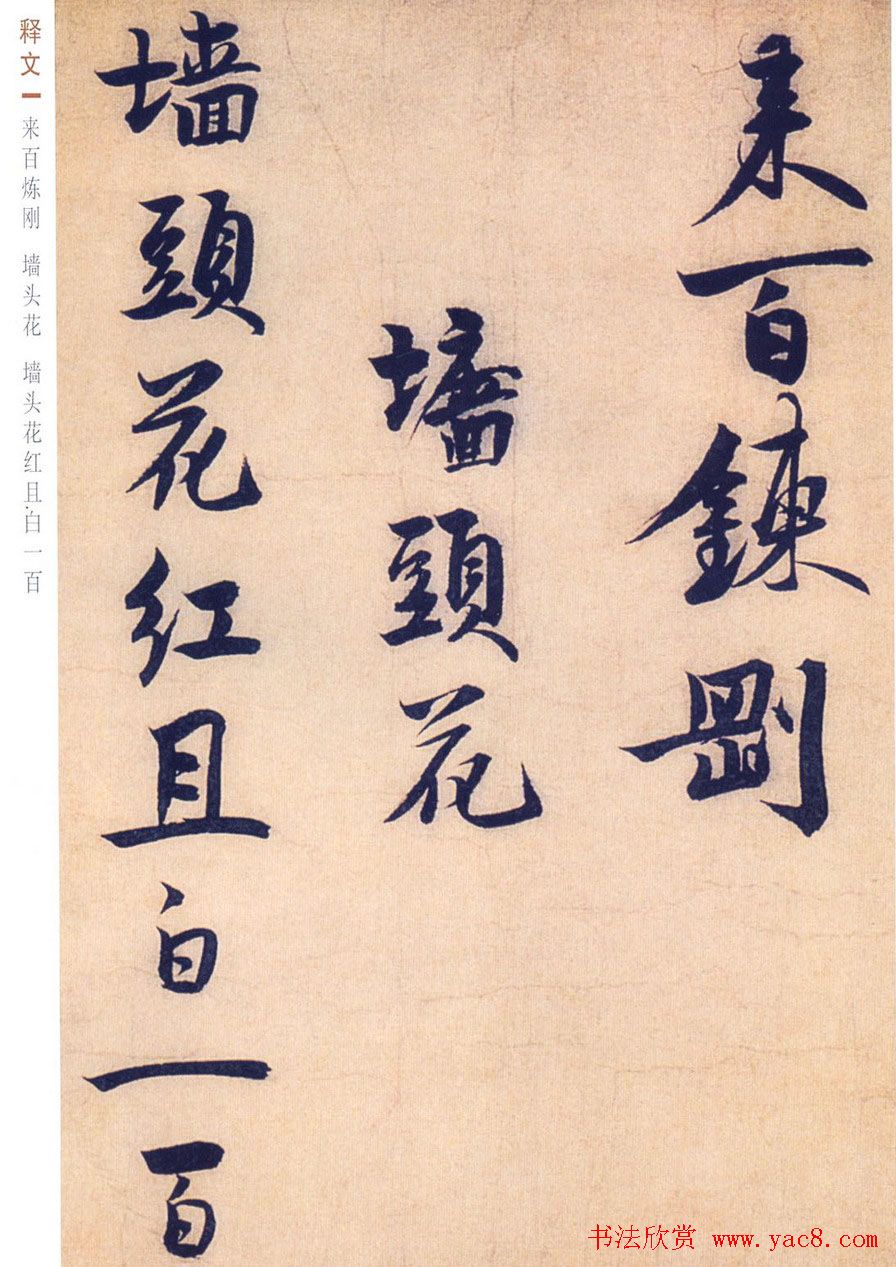 来百鍊剛
墻頭花
墙頭花红且白一百
释文
来百炼刚 墙头花 墙头花红且白一百
书法欣赏 www.yac8.com